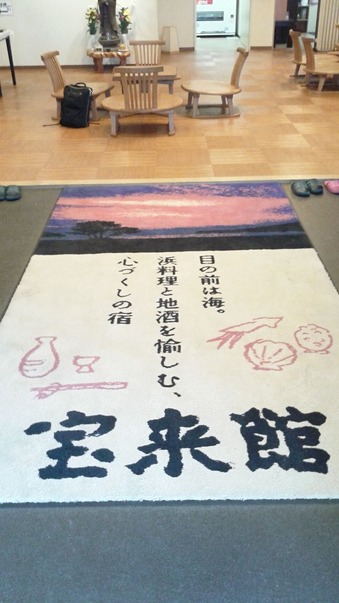 目の前は海。
浜料理と地酒を愉しむ、
心づくしの宿
宝来館